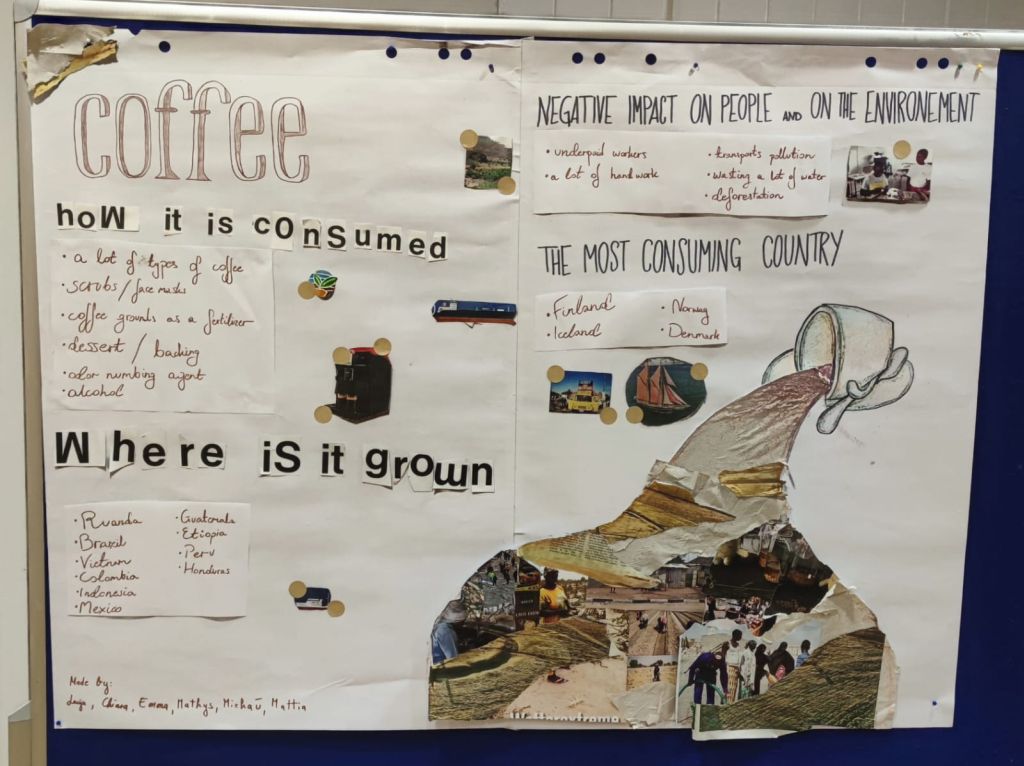 coffee
how it is consumed
• a lot of types of coffee
• scrubs / face masks
• coffee grounds as a fertilizer
• dessert / backing
• odor numbing agent
• alcohol
Where is it grown
• Ruanda
• Brazil
• Vietnam
• Colombia
• Indonesia
• Mexico
• Guatemala
• Etiopia
• Peru
• Honduras
Made by:
Chiara, Emma, Mathys, Michał, Mattia
NEGATIVE IMPACT ON PEOPLE AND ON THE ENVIRONEMENT
• underpaid workers
• a lot of handwork
• transports pollution
• wasting a lot of water
• deforestation
THE MOST CONSUMING COUNTRY
• Finland
• Iceland
• Norway
• Denmark